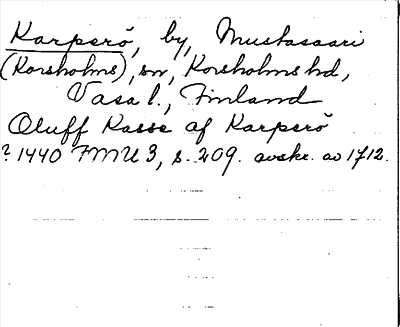 Karperö, by, Mustasaari
(Korsholms), sn, Korsholms hd,
Vasa l., Finland
Oluff Kasse af Karperö
? 1440 FMU 3, s. 209. avskr. av 1712.